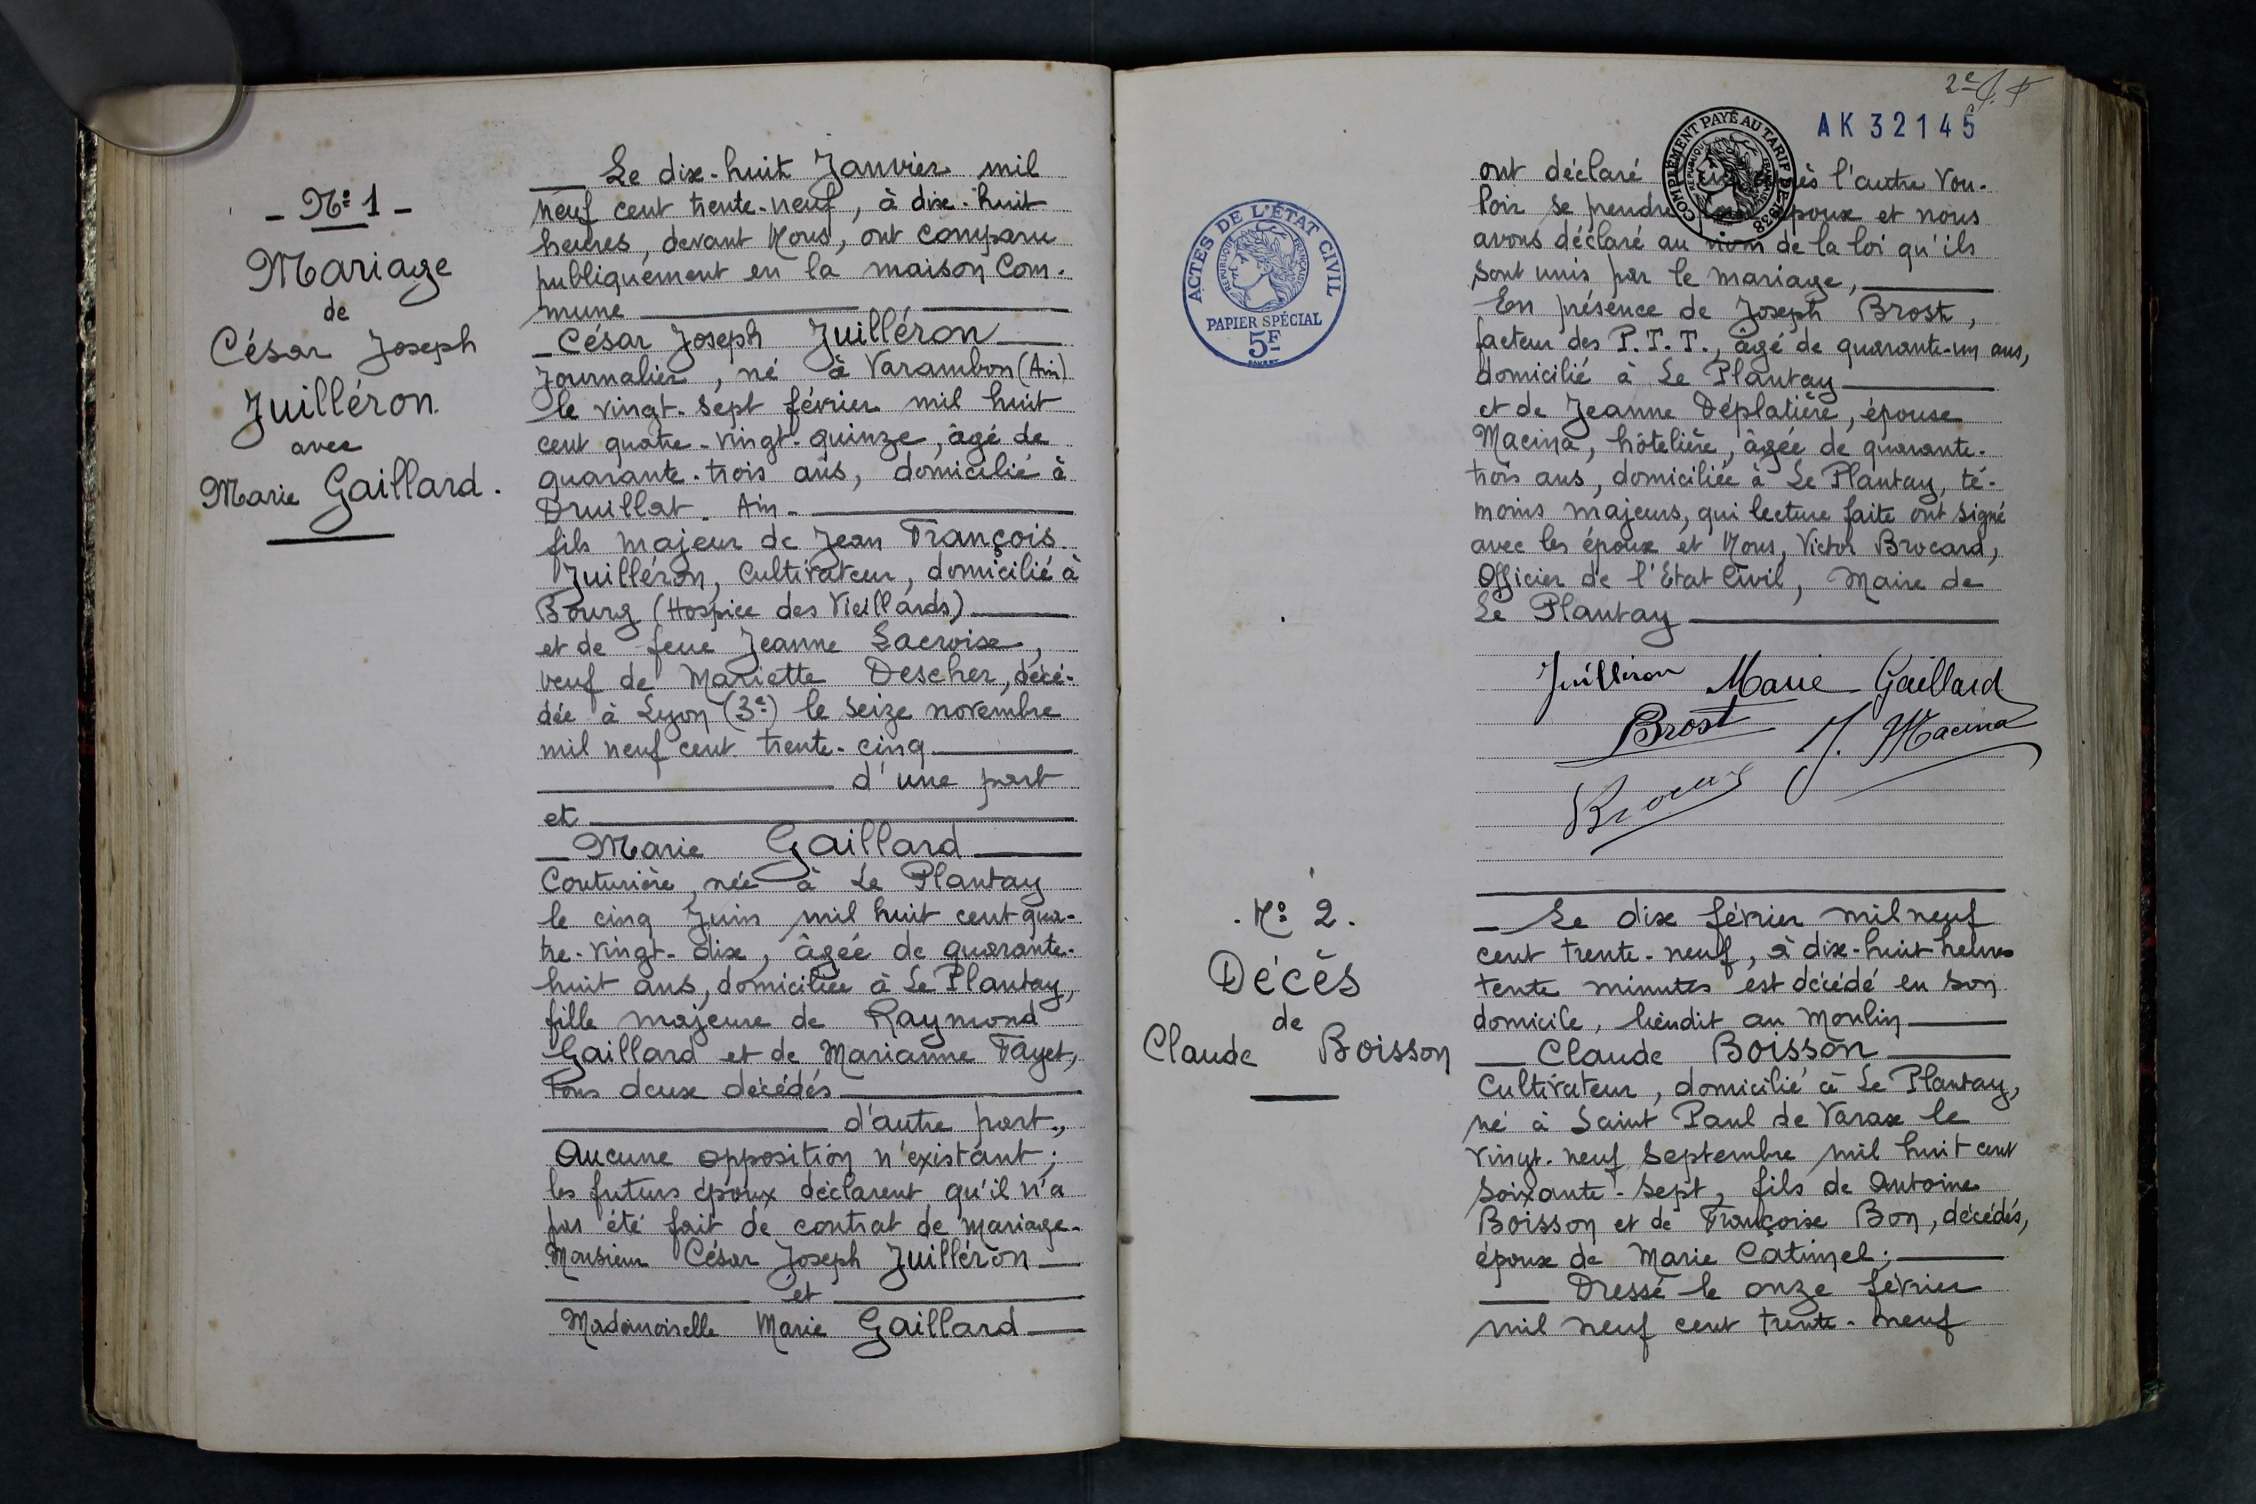 - No: 1 -
Mariage
de
César Joseph
Juilléron
avec
Marie Gaillard.
Le dix-huit Janvier mil
neuf cent trente-neuf, à dix-huit
heures, devant Nous, ont comparu
publiquement en la maison Com-
mune
César Joseph Juilléron
Journalier, né à Varambon (Ain)
le vingt-sept février mil huit
cent quatre-vingt-quinze, âgé de
quarante-trois ans, domicilié à
Druillat. Ain.
fils majeur de Jean François
Juilléron, Cultivateur, domicilié à
Bourg (Hospice des Vieillards)
et de feue Jeanne Lacroix,
veuf de Mariette Descher, décé-
dée à Lyon (3e) le seize novembre
mil neuf cent trente-cinq
d'une part
et
Marie Gaillard
Couturière, née à Le Plantay
le cinq Juin mil huit cent qua-
tre-vingt-dix, âgée de quarante-
huit ans, domiciliée à Le Plantay,
fille majeure de Raymond
Gaillard et de Marianne Fayet,
tous deux décédés
d'autre part.,
Aucune opposition n'existant;
les futurs époux déclarent qu'il n'a
pas été fait de contrat de mariage.
Monsieur César Joseph Juilléron
et
Mademoiselle Marie Gaillard
2e
AK 32145
COMPLÉMENT PAYÉ AU TARIF DE 1938
RÉPUBLIQUE FRANÇAISE
ACTES DE L'ÉTAT CIVIL
RÉPUBLIQUE FRANÇAISE
PAPIER SPÉCIAL
5F
ont déclaré l'autre vou-
loir se prendre époux et nous
avons déclaré au nom de la loi qu'ils
sont unis par le mariage,
En présence de Joseph Brost,
facteur des P.T.T., âgé de quarante-un ans,
domicilié à Le Plantay
et de Jeanne Déplatière, épouse
Macina, hôtelière, âgée de quarante-
trois ans, domiciliée à Le Plantay, té-
moins majeurs, qui lecture faite ont signé
avec les époux et Nous, Victor Brocard,
Officier de l'Etat Civil, Maire de
Le Plantay
Juilléron Marie Gaillard
Brost J. Macina
Brocard
. No: 2.
Décès
de
Claude Boisson
Le dix février mil neuf
cent trente-neuf, à dix-huit heures
tente minutes est décédé en son
domicile, lieudit au Moulin
Claude Boisson
Cultivateur, domicilié à Le Plantay,
né à Saint Paul de Varax le
vingt-neuf Septembre mil huit cent
soixante-sept, fils de Antoine
Boisson et de Françoise Bon, décédés,
époux de Marie Catimel;
Dressé le onze février
mil neuf cent trente-neuf